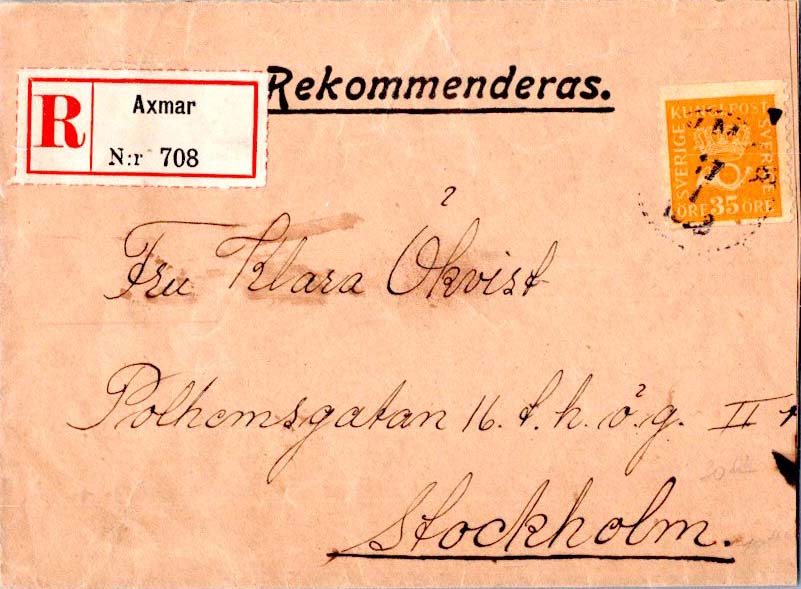 Rekommenderas.
R
Axmar
N:r 708
KUNGL POST
SVERIGE
SVERIGE
ÖRE 35 ÖRE
Fru Klara Ökvist
Polhemsgatan 16. t. h. ö. g. II
Stockholm.